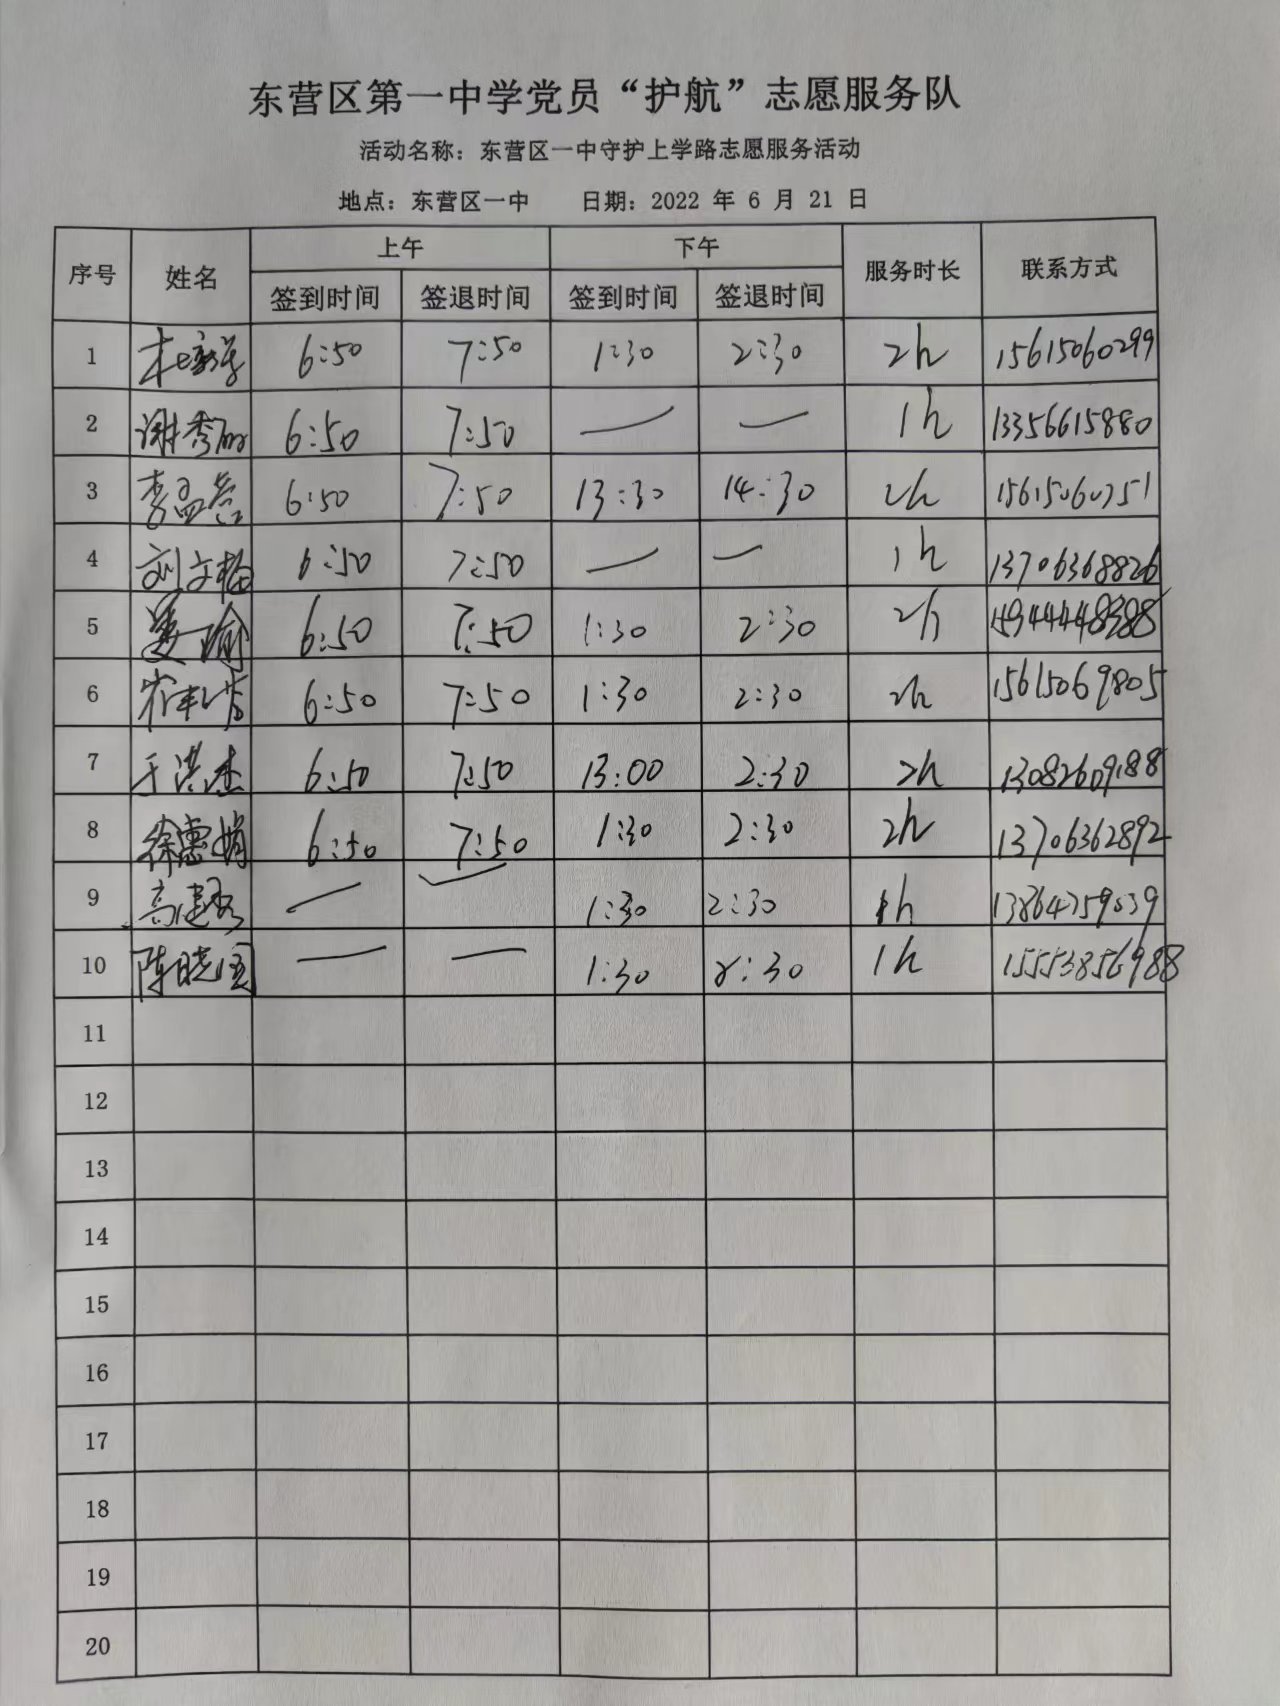 东营区第一中学党员“护航”志愿服务队
活动名称：东营区一中守护上学路志愿服务活动
地点：东营区一中 日期：2022 年 6 月 21 日
序号 姓名 上午 下午 服务时长 联系方式
签到时间 签退时间 签到时间 签退时间
1 6:50 7:50 1:30 2:30 2h 15615060299
2 谢秀丽 6:50 7:50 — — 1h 13356615880
3 李孟 6:50 7:50 13:30 14:30 2h 15615060751
4 刘文梅 6:50 7:50 — — 1h 13706368826
5 姜瑜 6:50 7:50 1:30 2:30 2h
6 6:50 7:50 1:30 2:30 2h 15615069805
7 于洪杰 6:50 7:50 13:00 2:30 2h 13082609188
8 徐惠娟 6:50 7:50 1:30 2:30 2h 13706362892
9 高建 — 1:30 2:30 1h
10 陈晓 — — 1:30 2:30 1h 15553856988
11
12
13
14
15
16
17
18
19
20